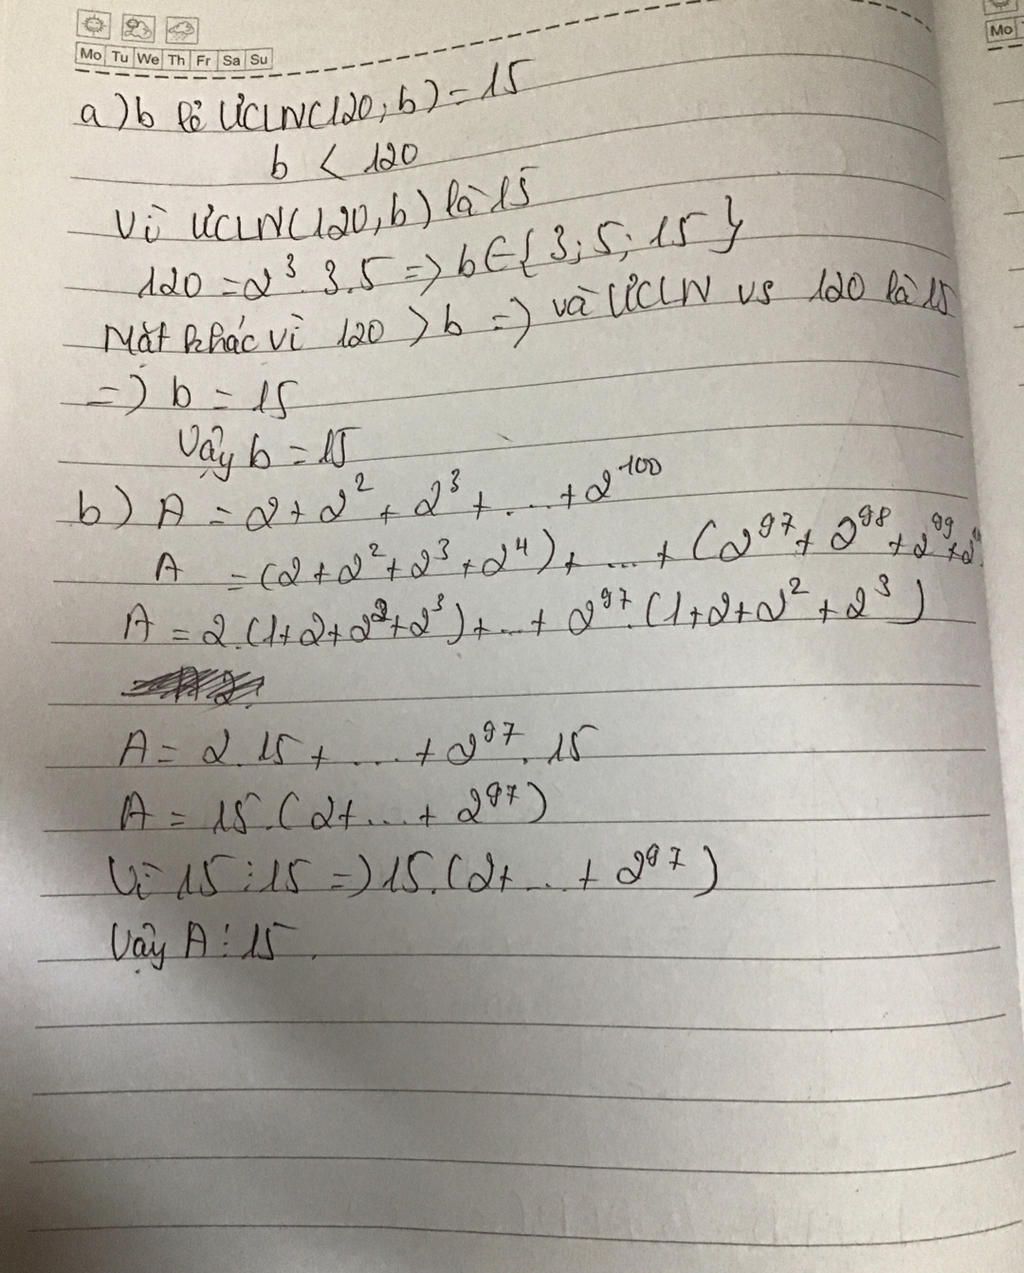 Mo Tu We Th Fr Sa Su
Mo
a) b lẻ ƯCLN(120, b) = 15
b < 120
Vì ƯCLN(120, b) là 15
120 = 2³.3.5 => b ∈ {3; 5; 15}
Mặt khác vì 120 > b => và ƯCLN vs 120 là 15
=> b = 15
Vậy b = 15
b) A = 2 + 2² + 2³ + ... + 2¹⁰⁰
A = (2 + 2² + 2³ + 2⁴) + ... + (2⁹⁷ + 2⁹⁸ + 2⁹⁹ + 2
A = 2.(1+2+2²+2³) + ... + 2⁹⁷.(1+2+2²+2³)
A = 2.15 + ... + 2⁹⁷.15
A = 15.(2+ ... + 2⁹⁷)
Vì 15 ⋮ 15 => 15.(2+ ... + 2⁹⁷)
Vậy A ⋮ 15.